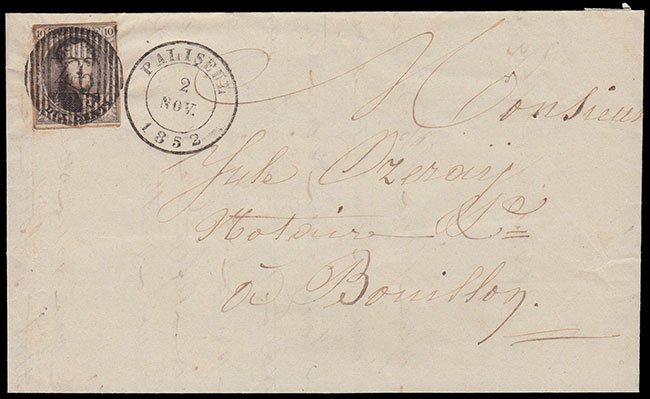 10 10
PALISEUL
2
NOV.
1852
Monsieur
Jule Ozeray
Notaire &c
à Bouillon.